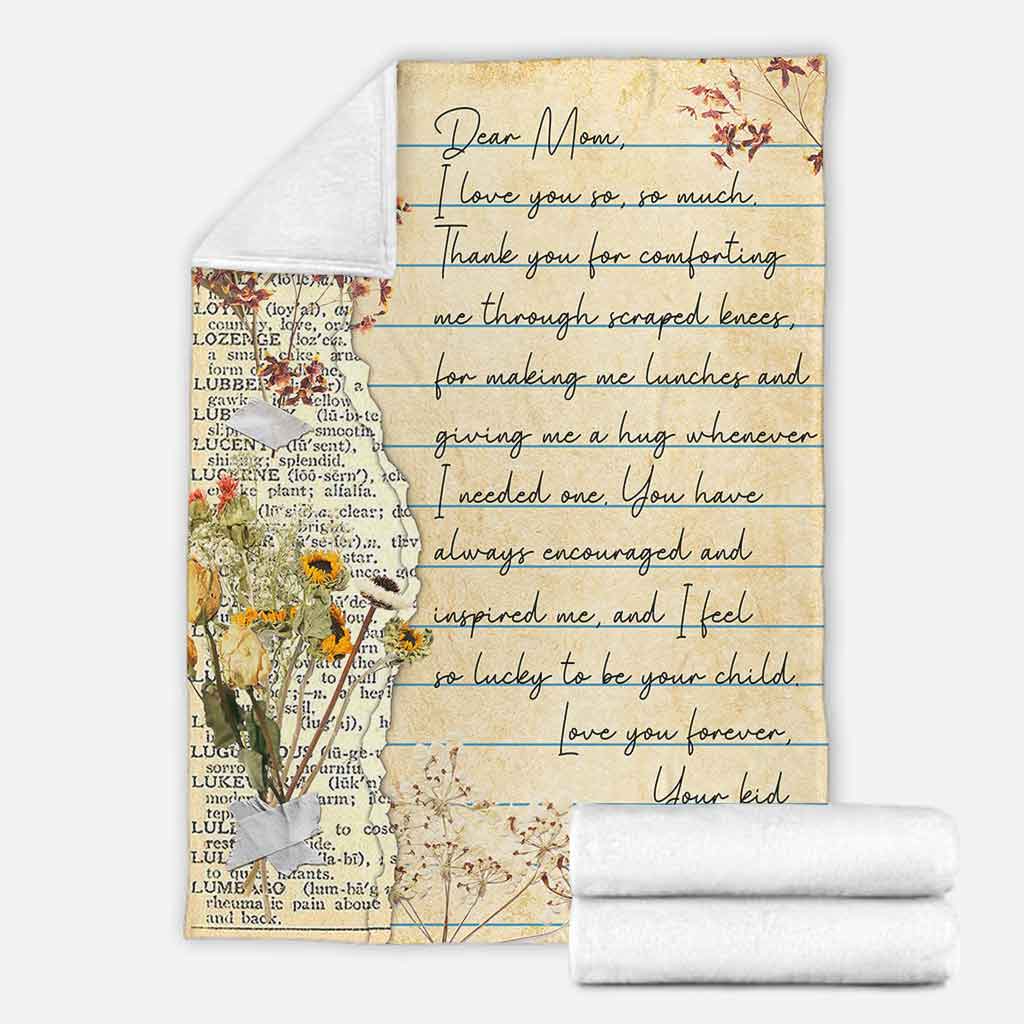 Dear Mom,
I love you so, so much.
Thank you for comforting
me through scraped knees,
for making me lunches and
giving me a hug whenever
I needed one. You have
always encouraged and
inspired me, and I feel
so lucky to be your child.
Love you forever,
Your kid
(loy'al),
country, love,
LOZENGE (loz'en
a small cake,
form
LUBBER
gawk
(lū-bri-
smooth
LUCENT (lū'sent),
shining; splendid.
LUCERNE (lōō-sẽrn'),
plant; alfalfa.
clear;
bright.
star.
toward the
to pull
sail.
(lug'aj),
sorro
mournfu
to
rest
to quiet infants.
LUMBAGO (lum-bā'g
rheumatic pain about
and back.